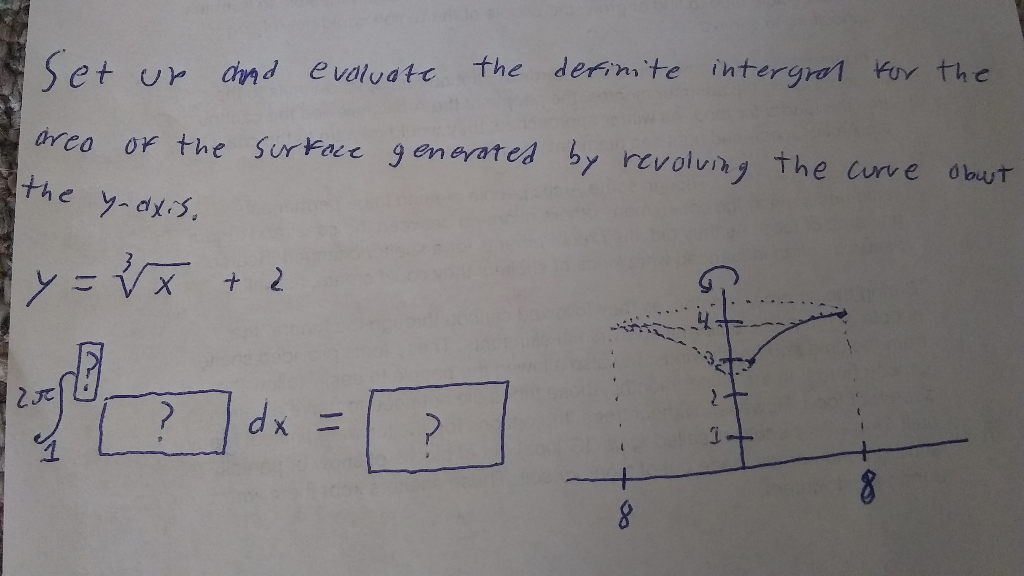 Set up and evaluate the definite intergral for the
area of the surface generated by revolving the curve about
the y-axis.
y = ∛x + 2
2π ∫ 1 ? ? dx = ?
4
3
2
1
8 8